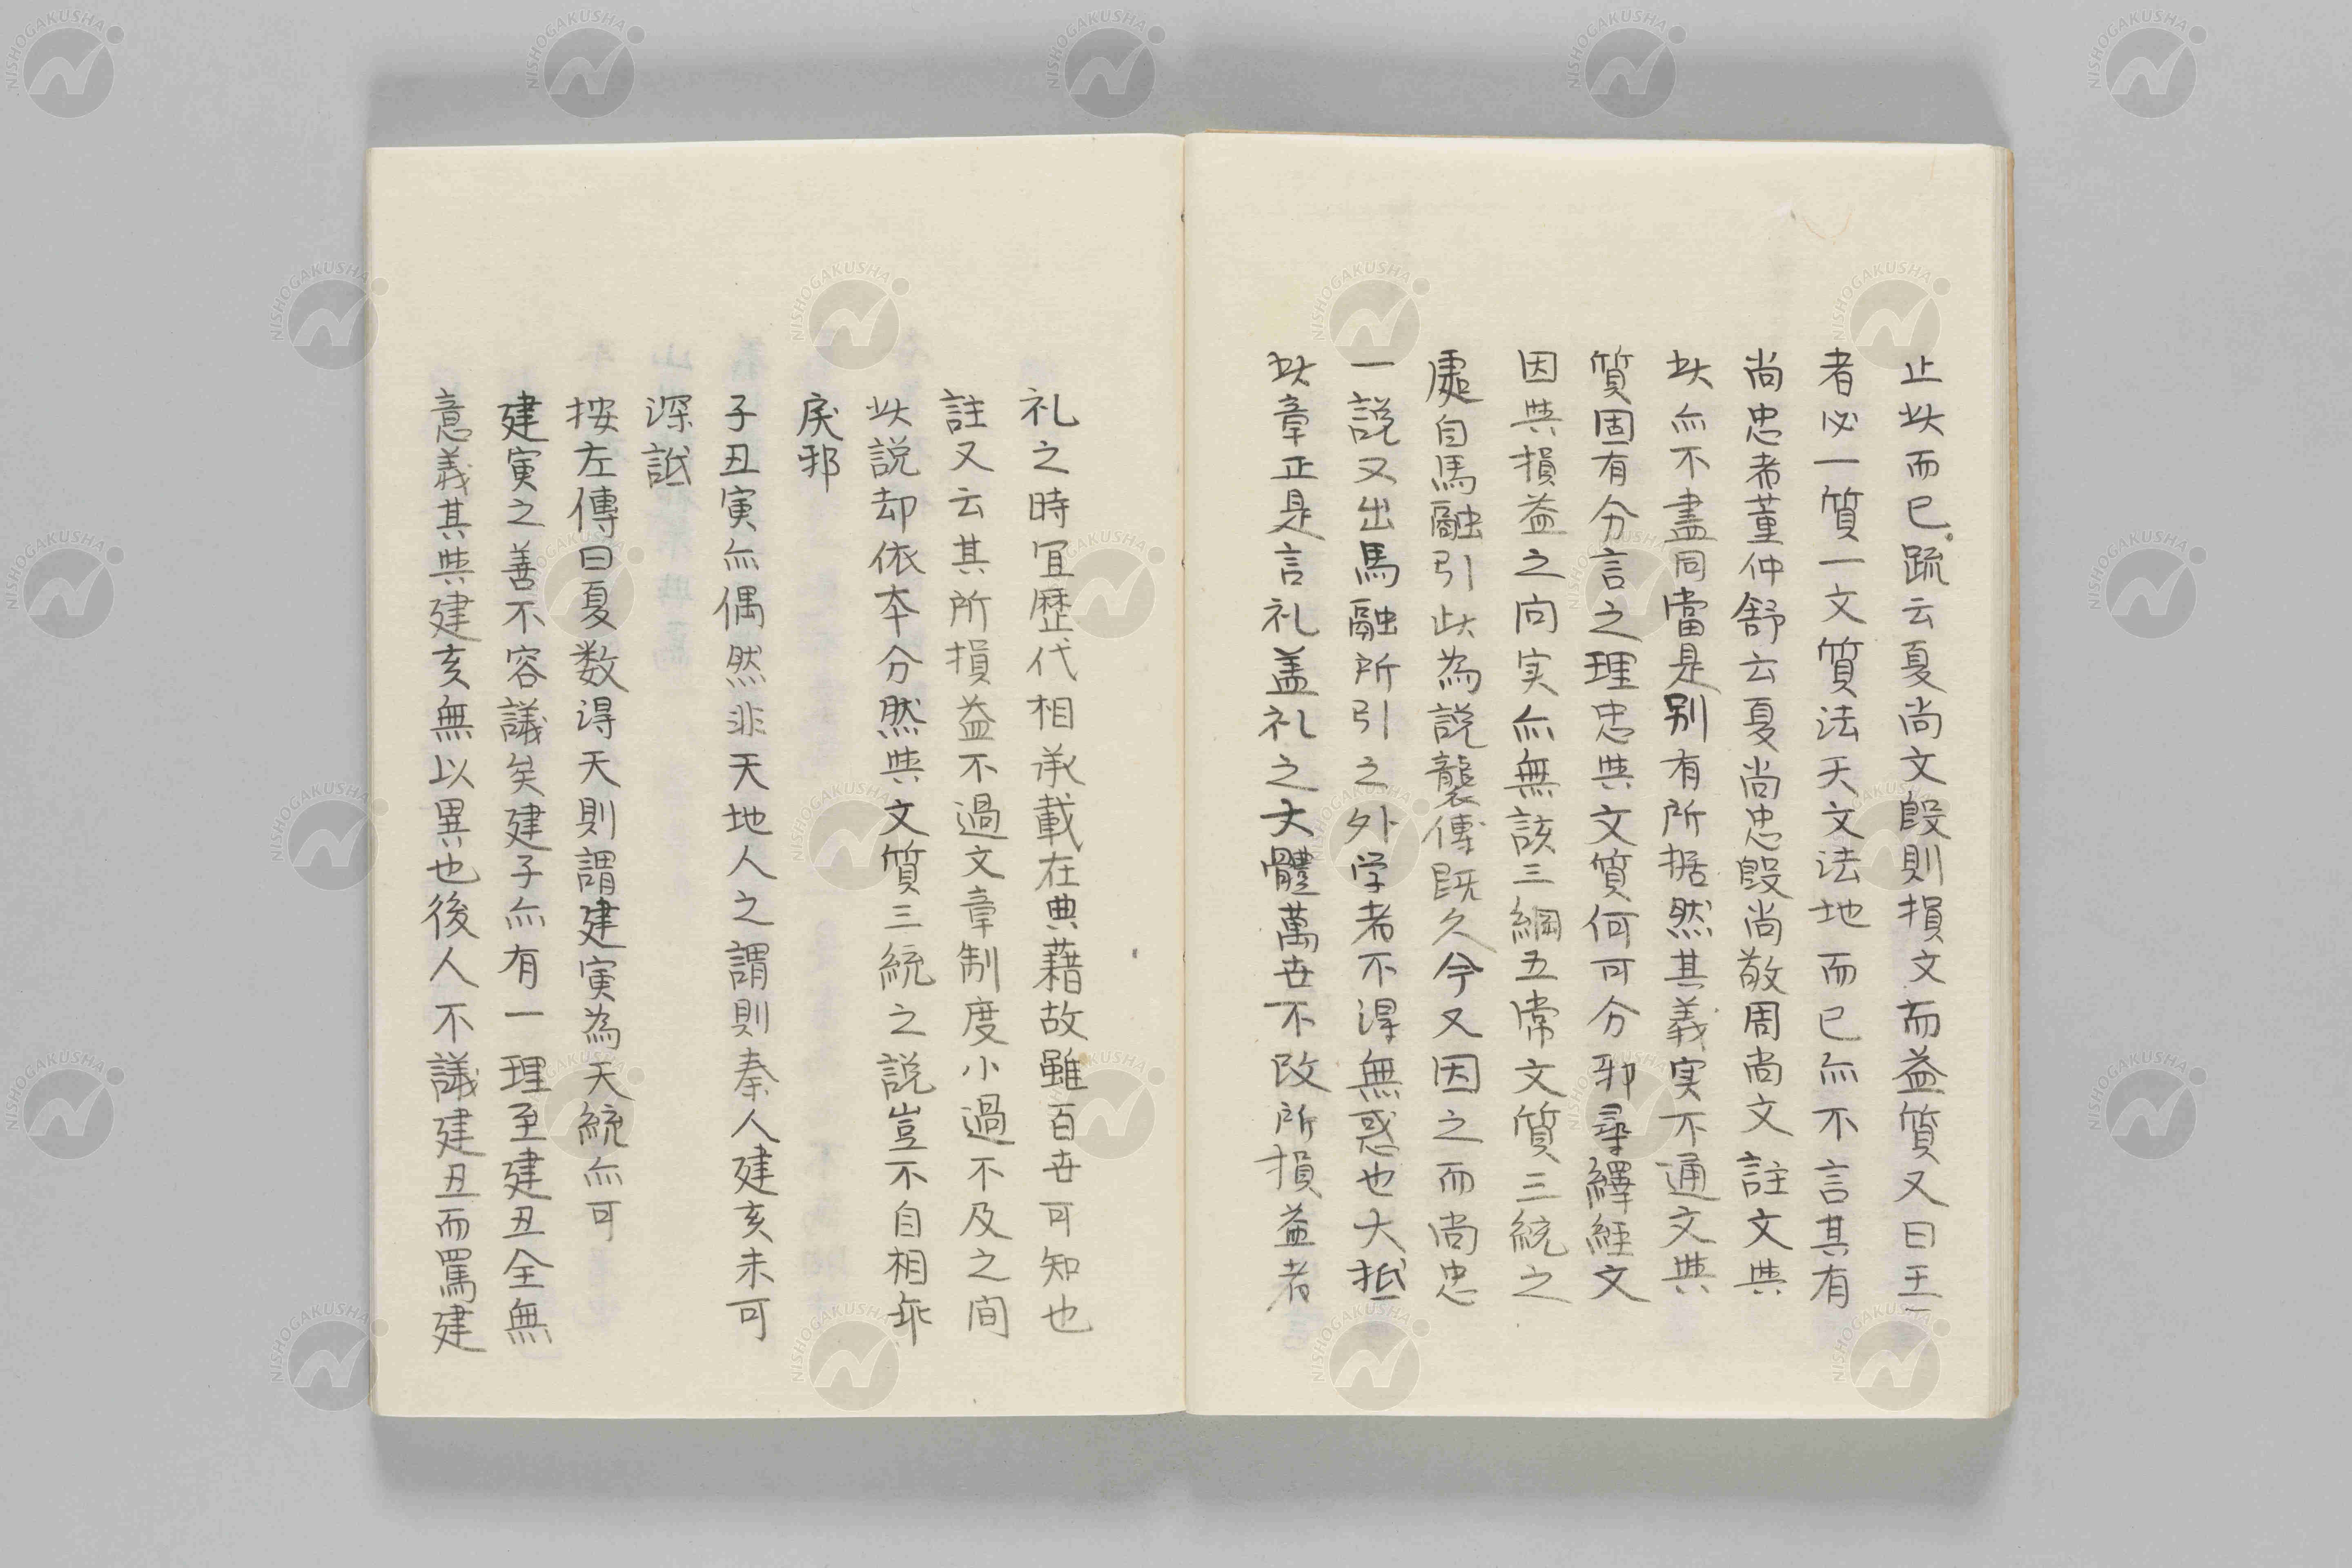 止此而已疏云夏尚文殷則損文而益質又曰王
者必一質一文質法天文法地而已亦不言其有
尚忠者董仲舒云夏尚忠殷尚敬周尚文註文與
此亦不盡同當是别有所据然其義実不通文與
質固有分言之理忠與文質何可分邪尋繹経文
因與損益之向実亦無該三綱五常文質三統之
處自馬融引此為説襲傳既久今又因之而尚忠
一説又出馬融所引之外学者不得無惑也大抵
此章正是言礼盖礼之大體萬世不改所損益者
礼之時宜歴代相承載在典藉故雖百世可知也
註又云其所損益不過文章制度小過不及之間
此説却依本分然與文質三統之説豈不自相乖
戻邪
子丑寅亦偶然非天地人之謂則秦人建亥未可
深詆
按左傳曰夏数得天則謂建寅為天統亦可
建寅之善不容議矣建子亦有一理至建丑全無
意義其與建亥無以異也後人不議建丑而罵建
NISHOGAKUSHA